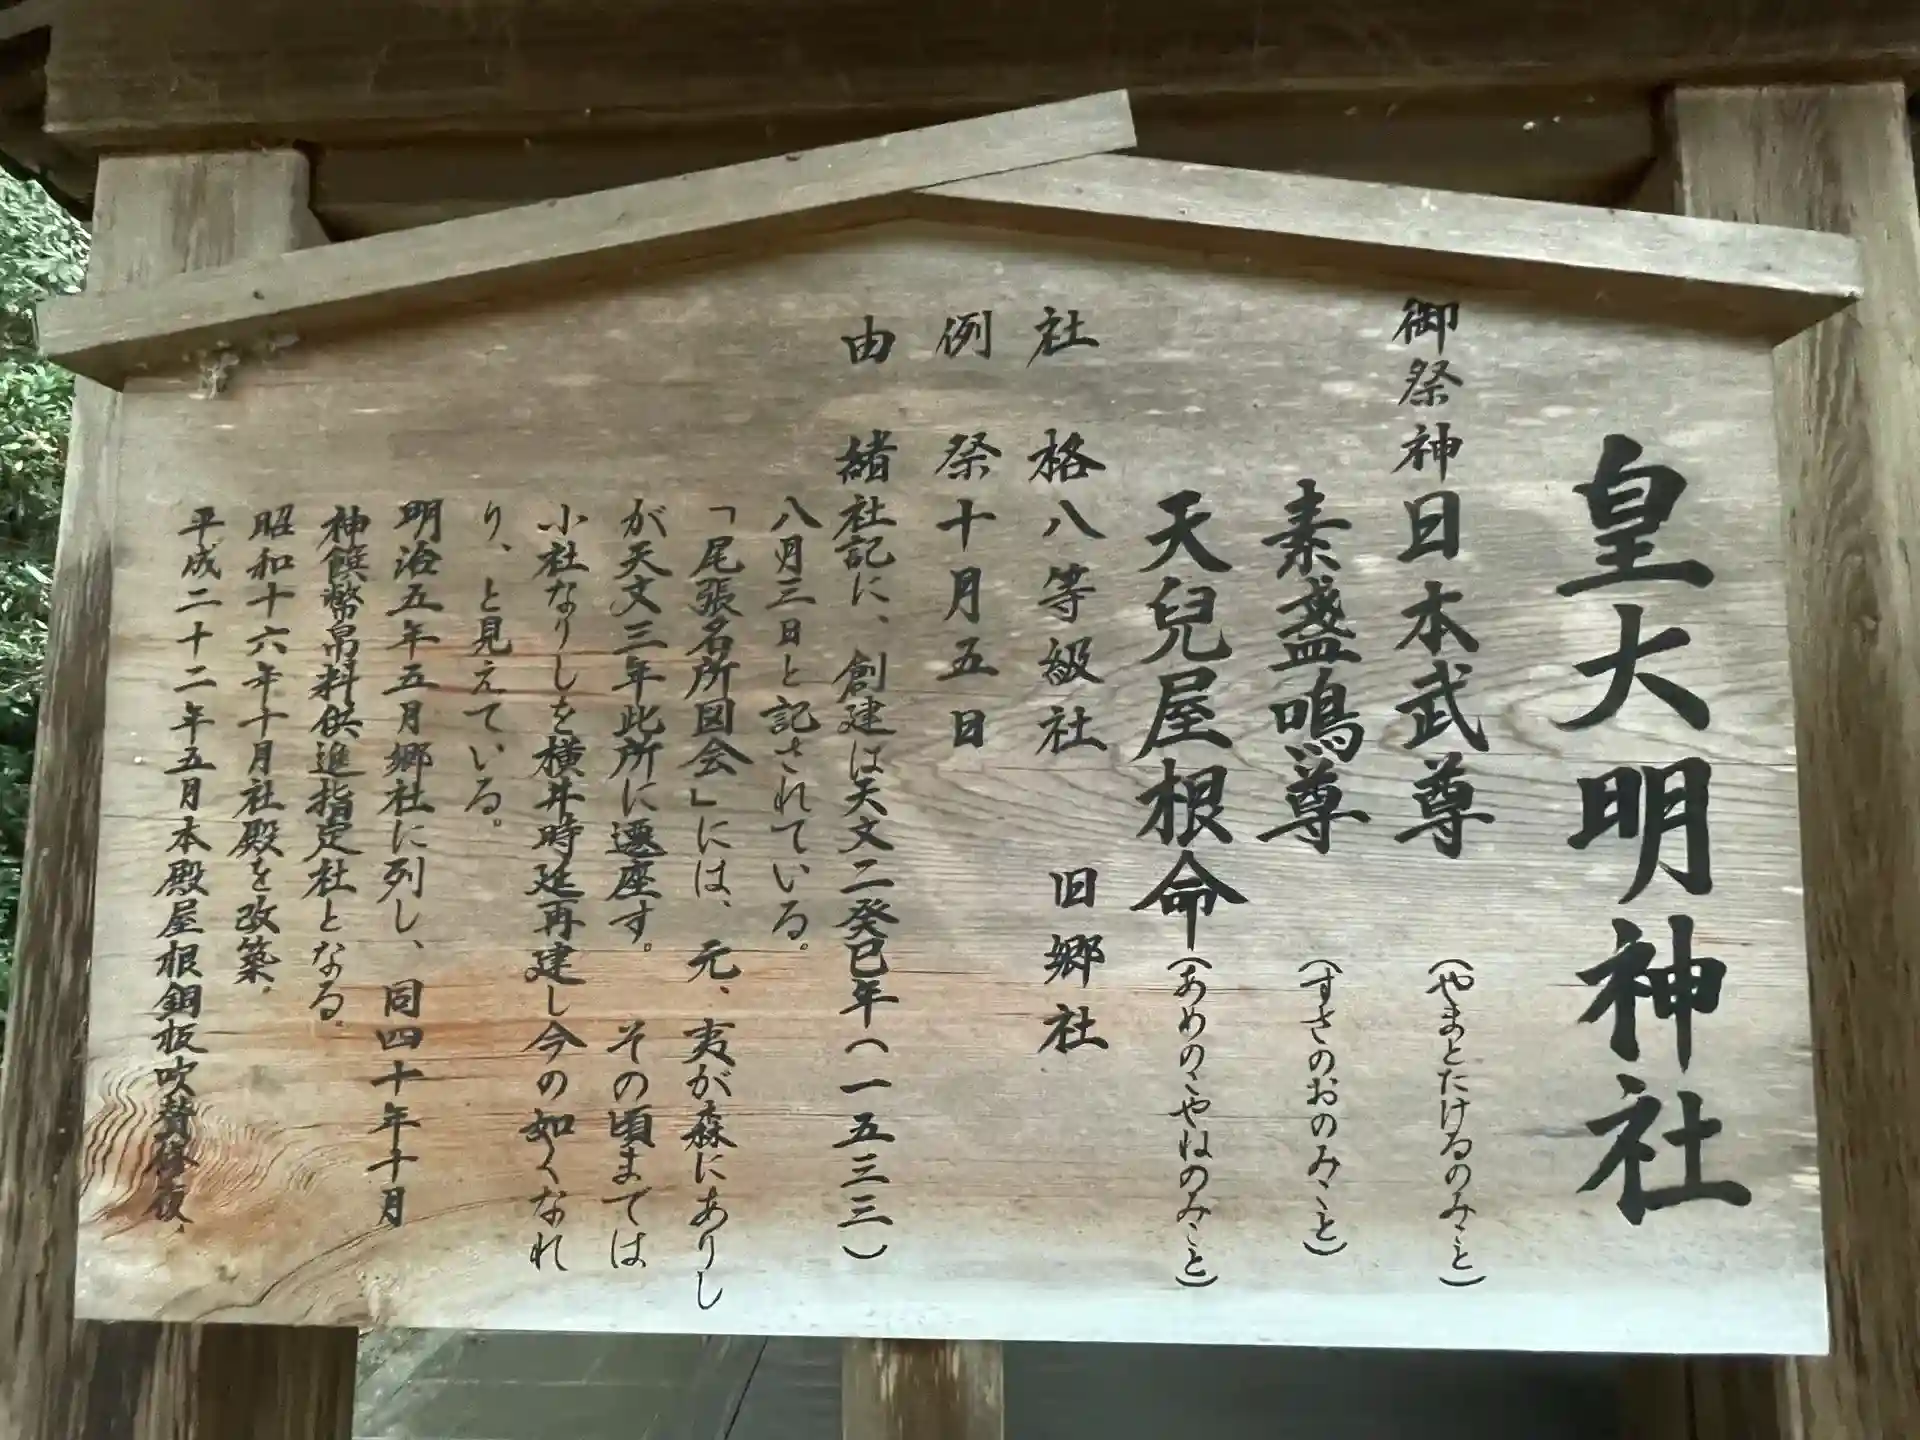 皇大明神社
御祭神 日本武尊 (やまとたけるのみこと)
素盞鳴尊 (すさのおのみこと)
天兒屋根命 (あめのこやねのみこと)
社格 八等級社 旧郷社
例祭 十月五日
由緒 社記に、創建は天文二癸巳年(一五三三)
八月三日と記されている。
「尾張名所図会」には、元、夷が森にありし
が天文三年此所に遷座す。その頃までは
小社なりしを横井時延再建し今の如くなれ
り、と見えている。
明治五年五月郷社に列し、同四十年十月
神饌幣帛料供進指定社となる。
昭和十六年十月社殿を改築。
平成二十二年五月本殿屋根銅板吹替修復、